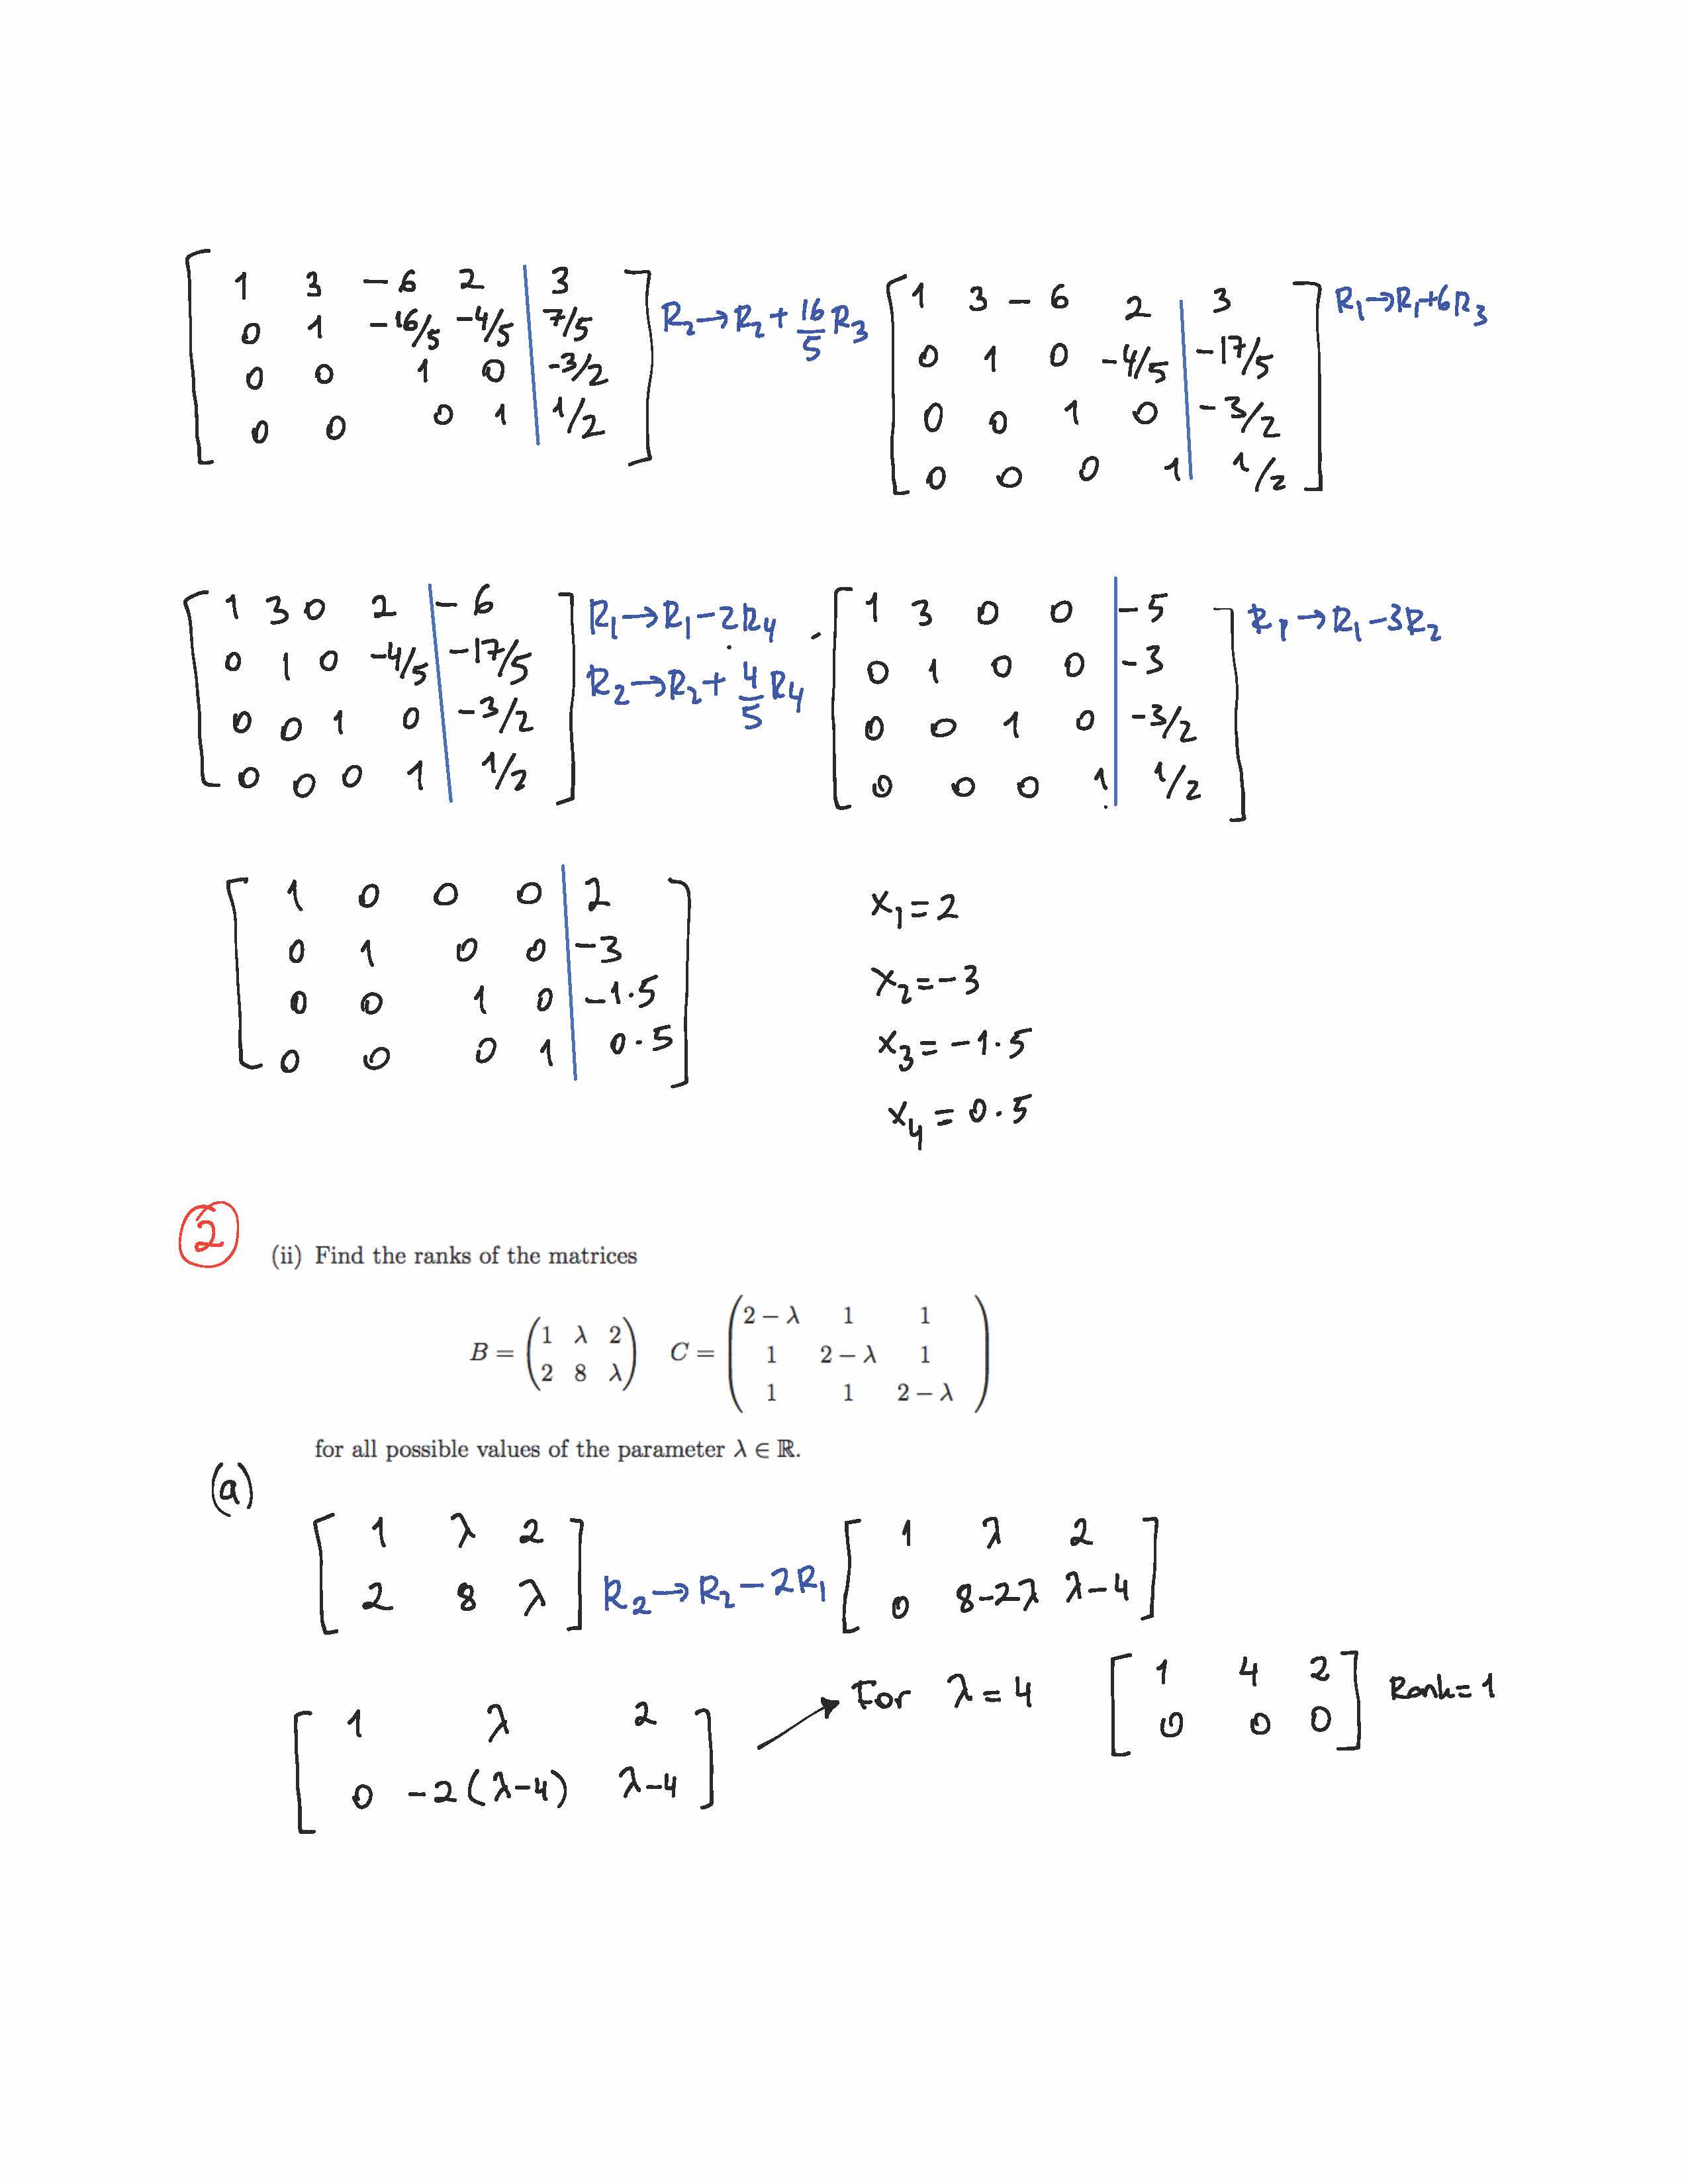 1 3 -6 2 3
0 1 -16/5 -4/5 7/5
0 0 1 0 -3/2
0 0 0 1 1/2
R2→R2+16/5 R3
1 3 -6 2 3
0 1 0 -4/5 -17/5
0 0 1 0 -3/2
0 0 0 1 1/2
R1→R1+6R3
1 3 0 2 -6
0 1 0 -4/5 -17/5
0 0 1 0 -3/2
0 0 0 1 1/2
R1→R1-2R4
R2→R2+4/5 R4
1 3 0 0 -5
0 1 0 0 -3
0 0 1 0 -3/2
0 0 0 1 1/2
R1→R1-3R2
1 0 0 0 2
0 1 0 0 -3
0 0 1 0 -1.5
0 0 0 1 0.5
x1=2
x2=-3
x3=-1.5
x4=0.5
2
(ii) Find the ranks of the matrices
B = (1 λ 2
2 8 λ)
C = (2 − λ 1 1
1 2 − λ 1
1 1 2 − λ)
for all possible values of the parameter λ ∈ ℝ.
(a)
1 λ 2
2 8 λ
R2→R2-2R1
1 λ 2
0 8-2λ λ-4
1 λ 2
0 -2(λ-4) λ-4
For λ=4
1 4 2
0 0 0
Rank=1